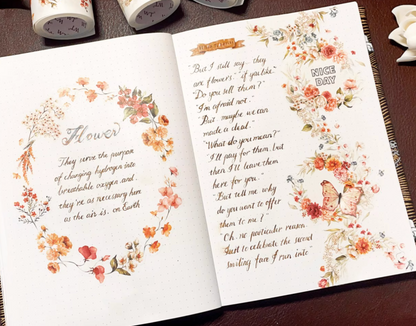 Flower
They serve the purpose
of changing hydrogen into
breathable oxygen and
they're as necessary here
as the air is, on Earth
"But I still say, they
are flowers." "if you like"
"Do you sell them?"
"I'm afraid not."
"But maybe we can
made a deal."
"What do you mean?"
"I'll pay for them, but
then I'll leave them
here for you."
"But tell me why
do you want to offer
them to me?"
"Oh, no particular reason
Just to celebrate the
smiling face I run into"
NICE
DAY